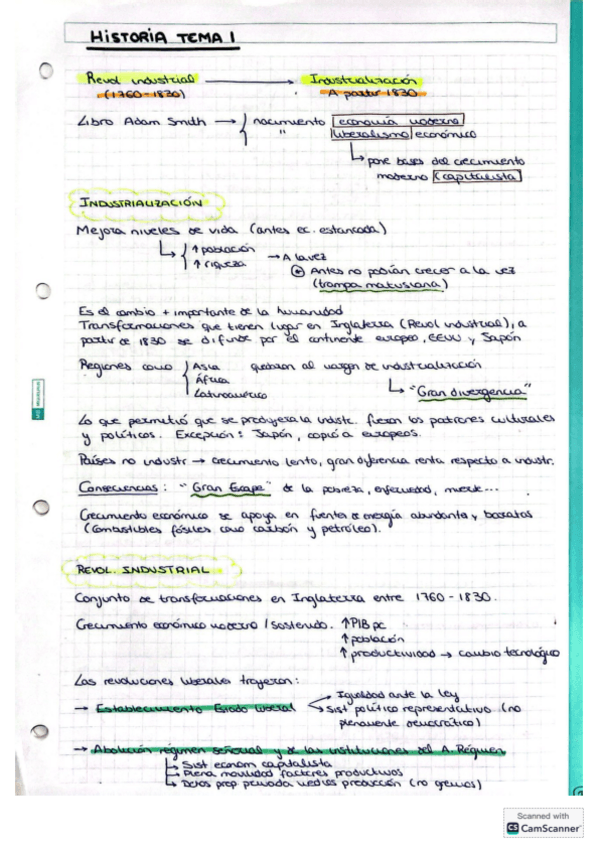 HISTORIA TEMA 1
Revol industrial → Industrialización
(1760-1830) A partir 1830
Libro Adam Smith → nacimiento economía moderna
" liberalismo económico
↳ pone bases del crecimiento
moderno (capitalista
INDUSTRIALIZACIÓN
Mejora niveles de vida (antes ec. estancada)
↳ ↑ población
↑ riqueza → A la vez
Antes no podían crecer a la vez
(trampa maltusiana)
Es el cambio + importante de la humanidad
Transformaciones que tienen lugar en Inglaterra (Revol industrial), a
partir de 1830 se difunde por el continente europeo, EEUU y Japón
Regiones como Asia quedaron al margen de industrialización
África
Latinoamérica ↳ "Gran divergencia"
Lo que permitió que se produjera la industr. fueron los patrones culturales
y políticos. Excepción: Japón, copió a europeos.
Países no industr → crecimiento lento, gran diferencia renta respecto a industr.
Consecuencias: "Gran Escape" de la pobreza, enfermedad, muerte...
Crecimiento económico se apoya en fuentes de energía abundantes y baratas
(Combustibles fósiles como carbón y petróleo).
REVOL. INDUSTRIAL
Conjunto de transformaciones en Inglaterra entre 1760-1830.
Crecimiento económico moderno / sostenido. ↑ PIB pc
↑ población
↑ productividad → cambio tecnológico
Las revoluciones liberales trajeron:
→ Establecimiento Estado liberal Igualdad ante la ley
Sist político representativo (no
plenamente democrático)
→ Abolición régimen señorial y de las instituciones del A. Régimen
↳ Sist econom capitalista
↳ Plena movilidad factores productivos
↳ Dchos prop privada medios producción (no gremios)
Scanned with
CS CamScanner